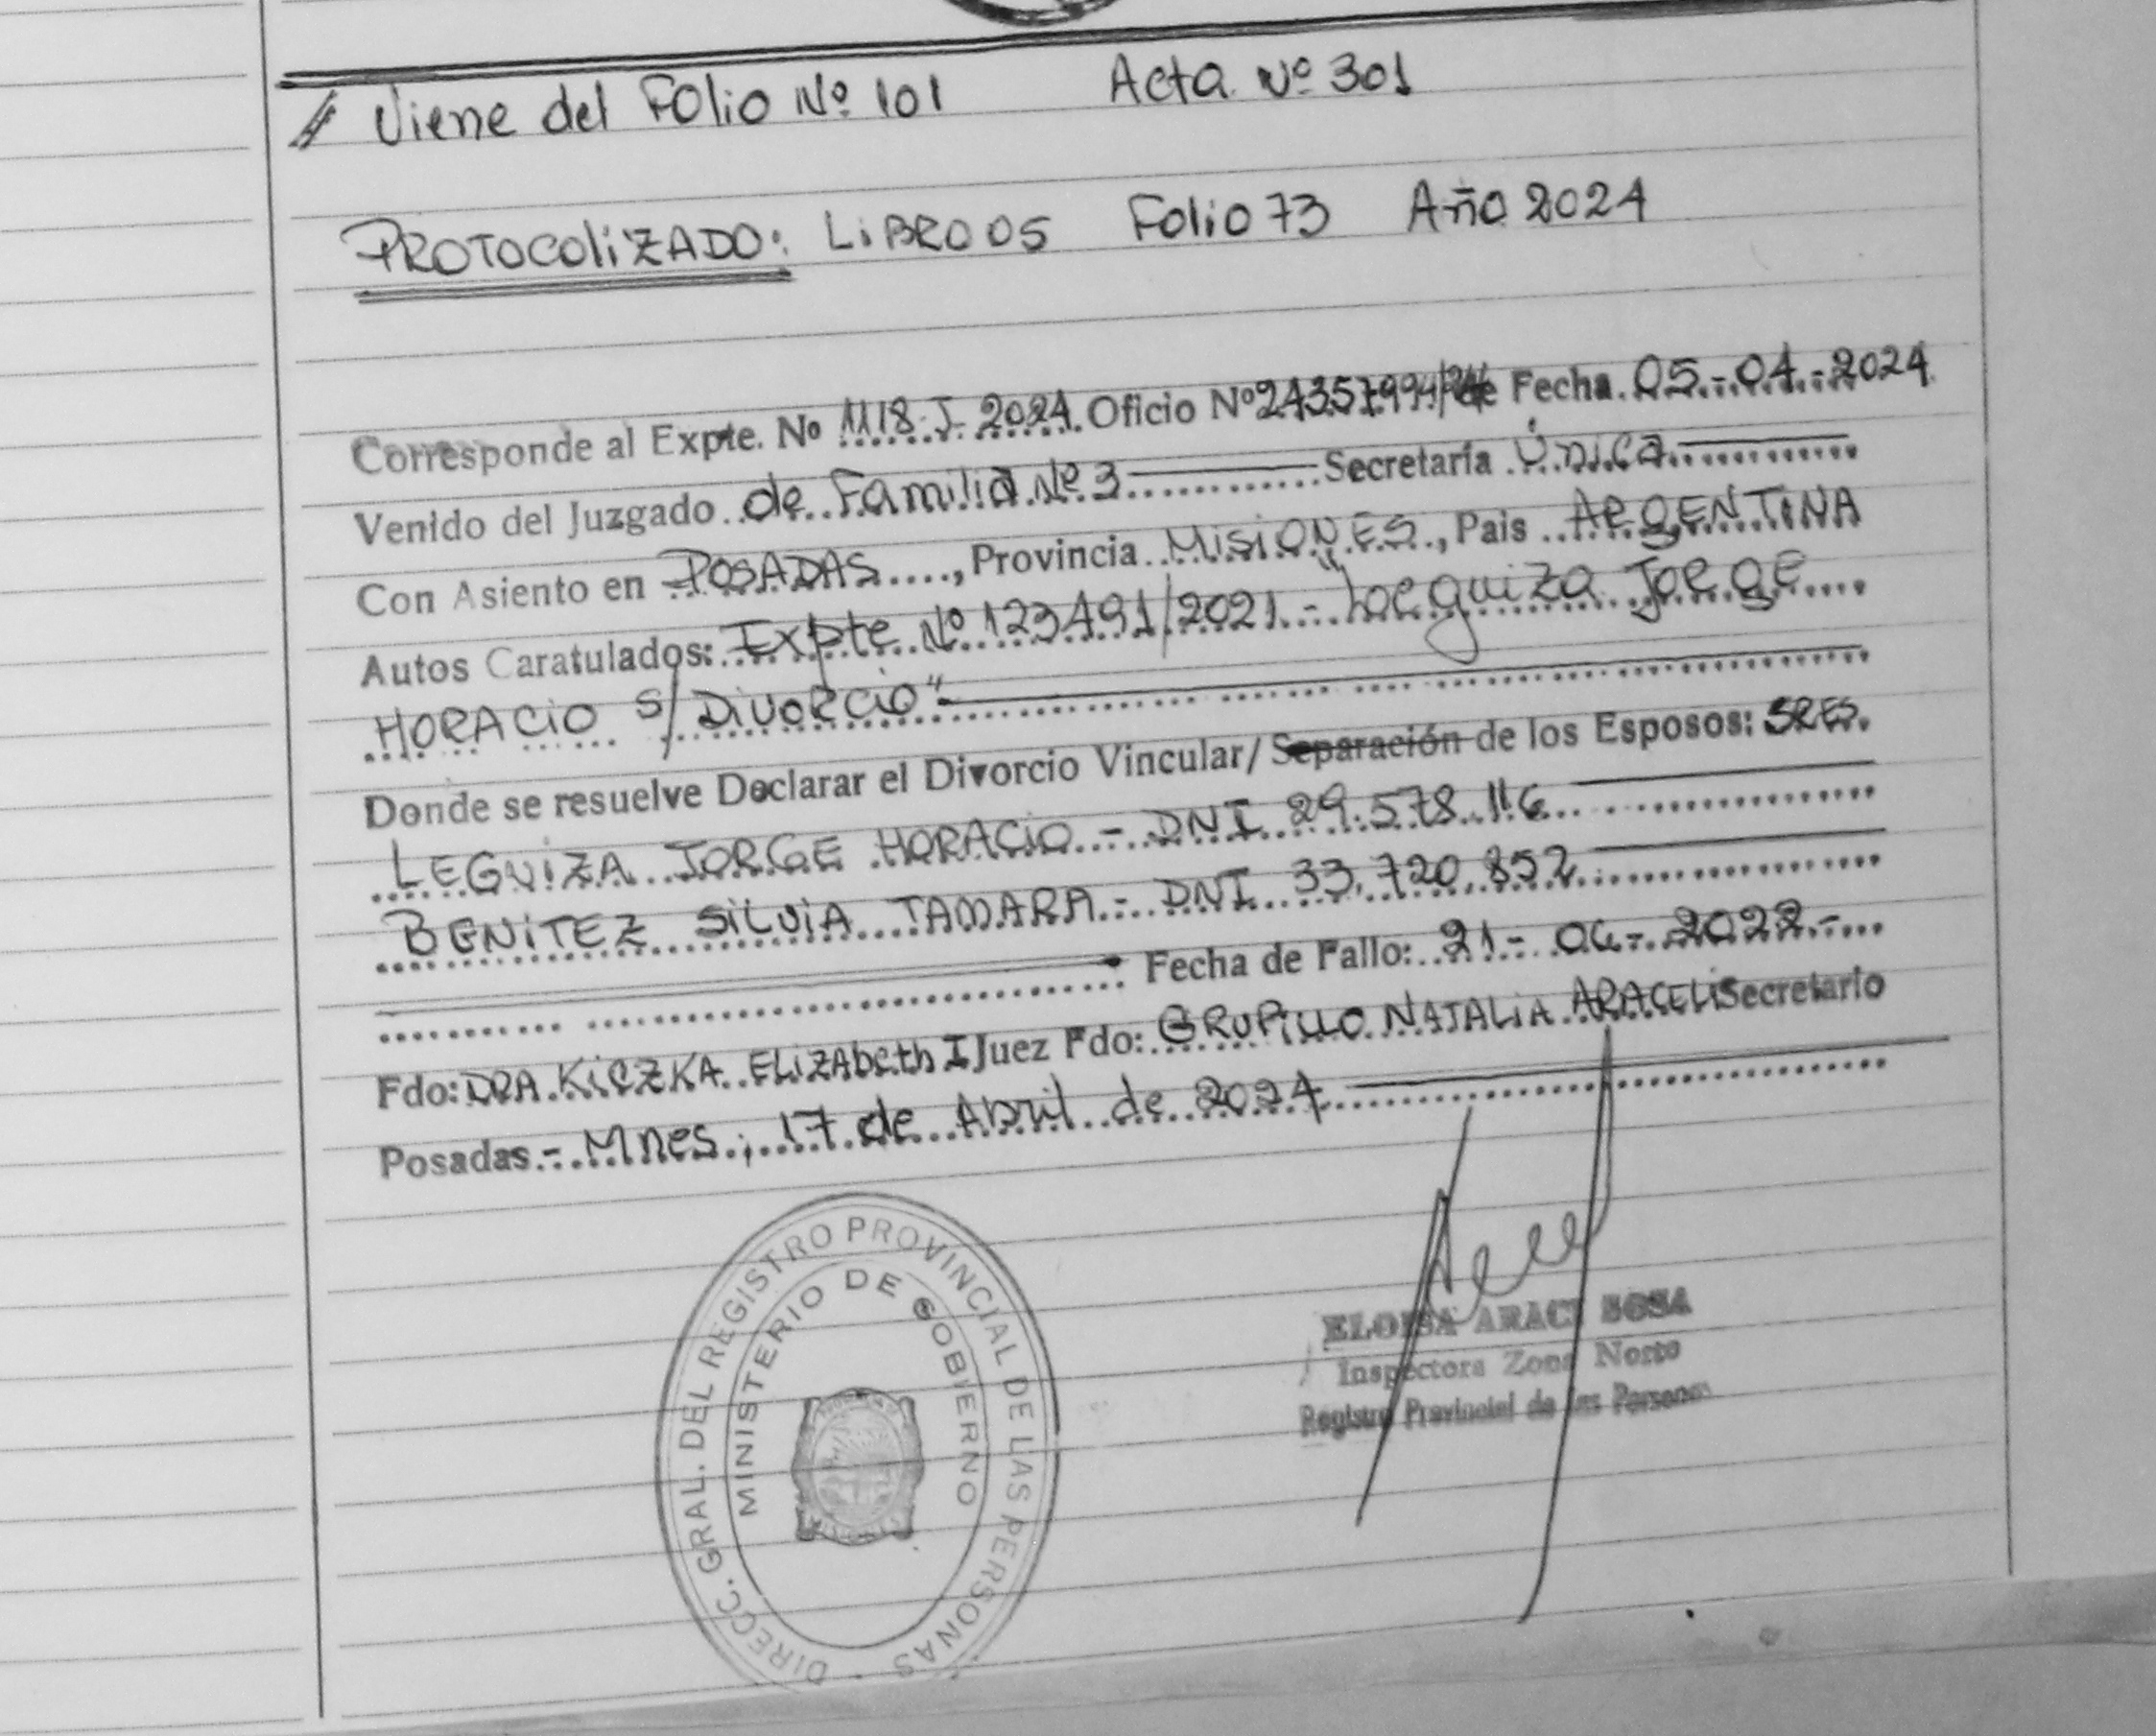 // Viene del Folio Nº 101 Acta Nº 301
PROTOCOLIZADO: LIBRO 05 Folio 73 Año 2024
Corresponde al Expte. Nº 1118-J-2024. Oficio Nº 24357994/24 de Fecha 05-04-2024
Venido del Juzgado de Familia Nº 3 Secretaría Única
Con Asiento en POSADAS, Provincia MISIONES, Pais ARGENTINA
Autos Caratulados: Expte Nº 123491/2021.- "Leguiza Jorge
HORACIO S/ DIVORCIO"
Donde se resuelve Declarar el Divorcio Vincular/ Separación de los Esposos: SRES.
LEGUIZA JORGE HORACIO.- DNI 29.578.116
BENITEZ SILVIA TAMARA.- DNI 33.720.852
Fecha de Fallo: 21-04-2022.-
Fdo: DRA. KICZKA ELIZAbeth I Juez Fdo: GRUPILLO NATALIA ARACELI Secretario
Posadas.- Mnes., 17 de Abril de 2024
DIRECC. GRAL. DEL REGISTRO PROVINCIAL DE LAS PERSONAS
MINISTERIO DE GOBIERNO
ELOISA ARACI SOSA
Inspectora Zona Norte
Registro Provincial de las Personas